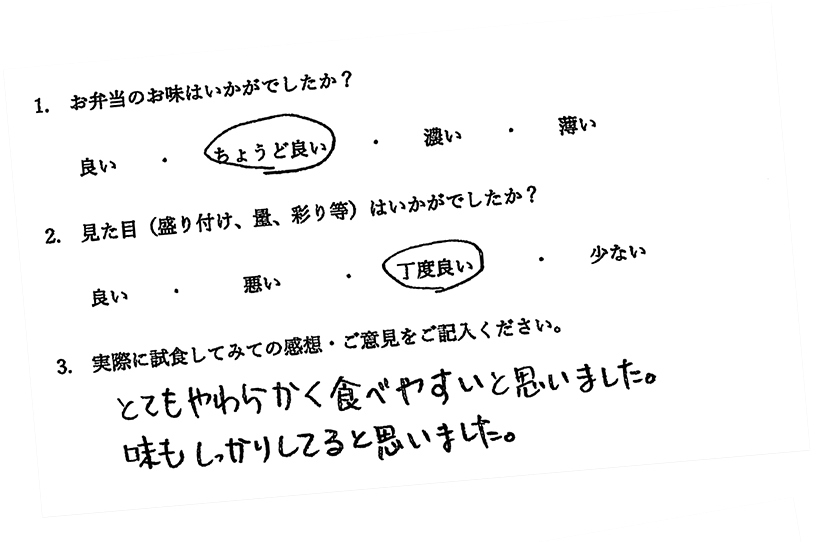 1. お弁当のお味はいかがでしたか？
良い ・ ちょうど良い ・ 濃い ・ 薄い
2. 見た目（盛り付け、量、彩り等）はいかがでしたか？
良い ・ 悪い ・ 丁度良い ・ 少ない
3. 実際に試食してみての感想・ご意見をご記入ください。
とてもやわらかく食べやすいと思いました。
味もしっかりしてると思いました。